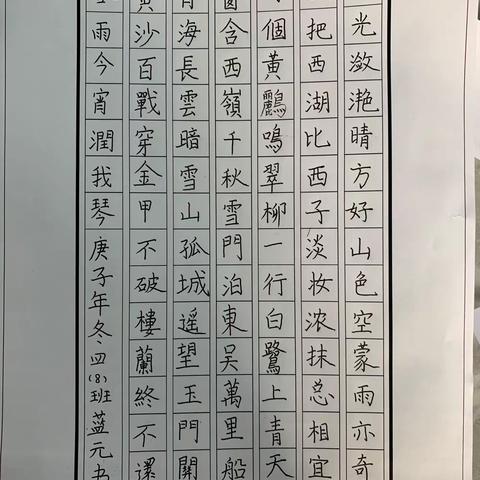 光潋滟晴方好山色空蒙雨亦奇
把西湖比西子淡妆浓抹总相宜
個黃鸝鳴翠柳一行白鷺上青天
含西嶺千秋雪門泊東吴萬里船
海長雲暗雪山孤城遥望玉門關
沙百戰穿金甲不破樓蘭終不還
雨今宵潤我琴庚子年冬四(8)班蓝元书